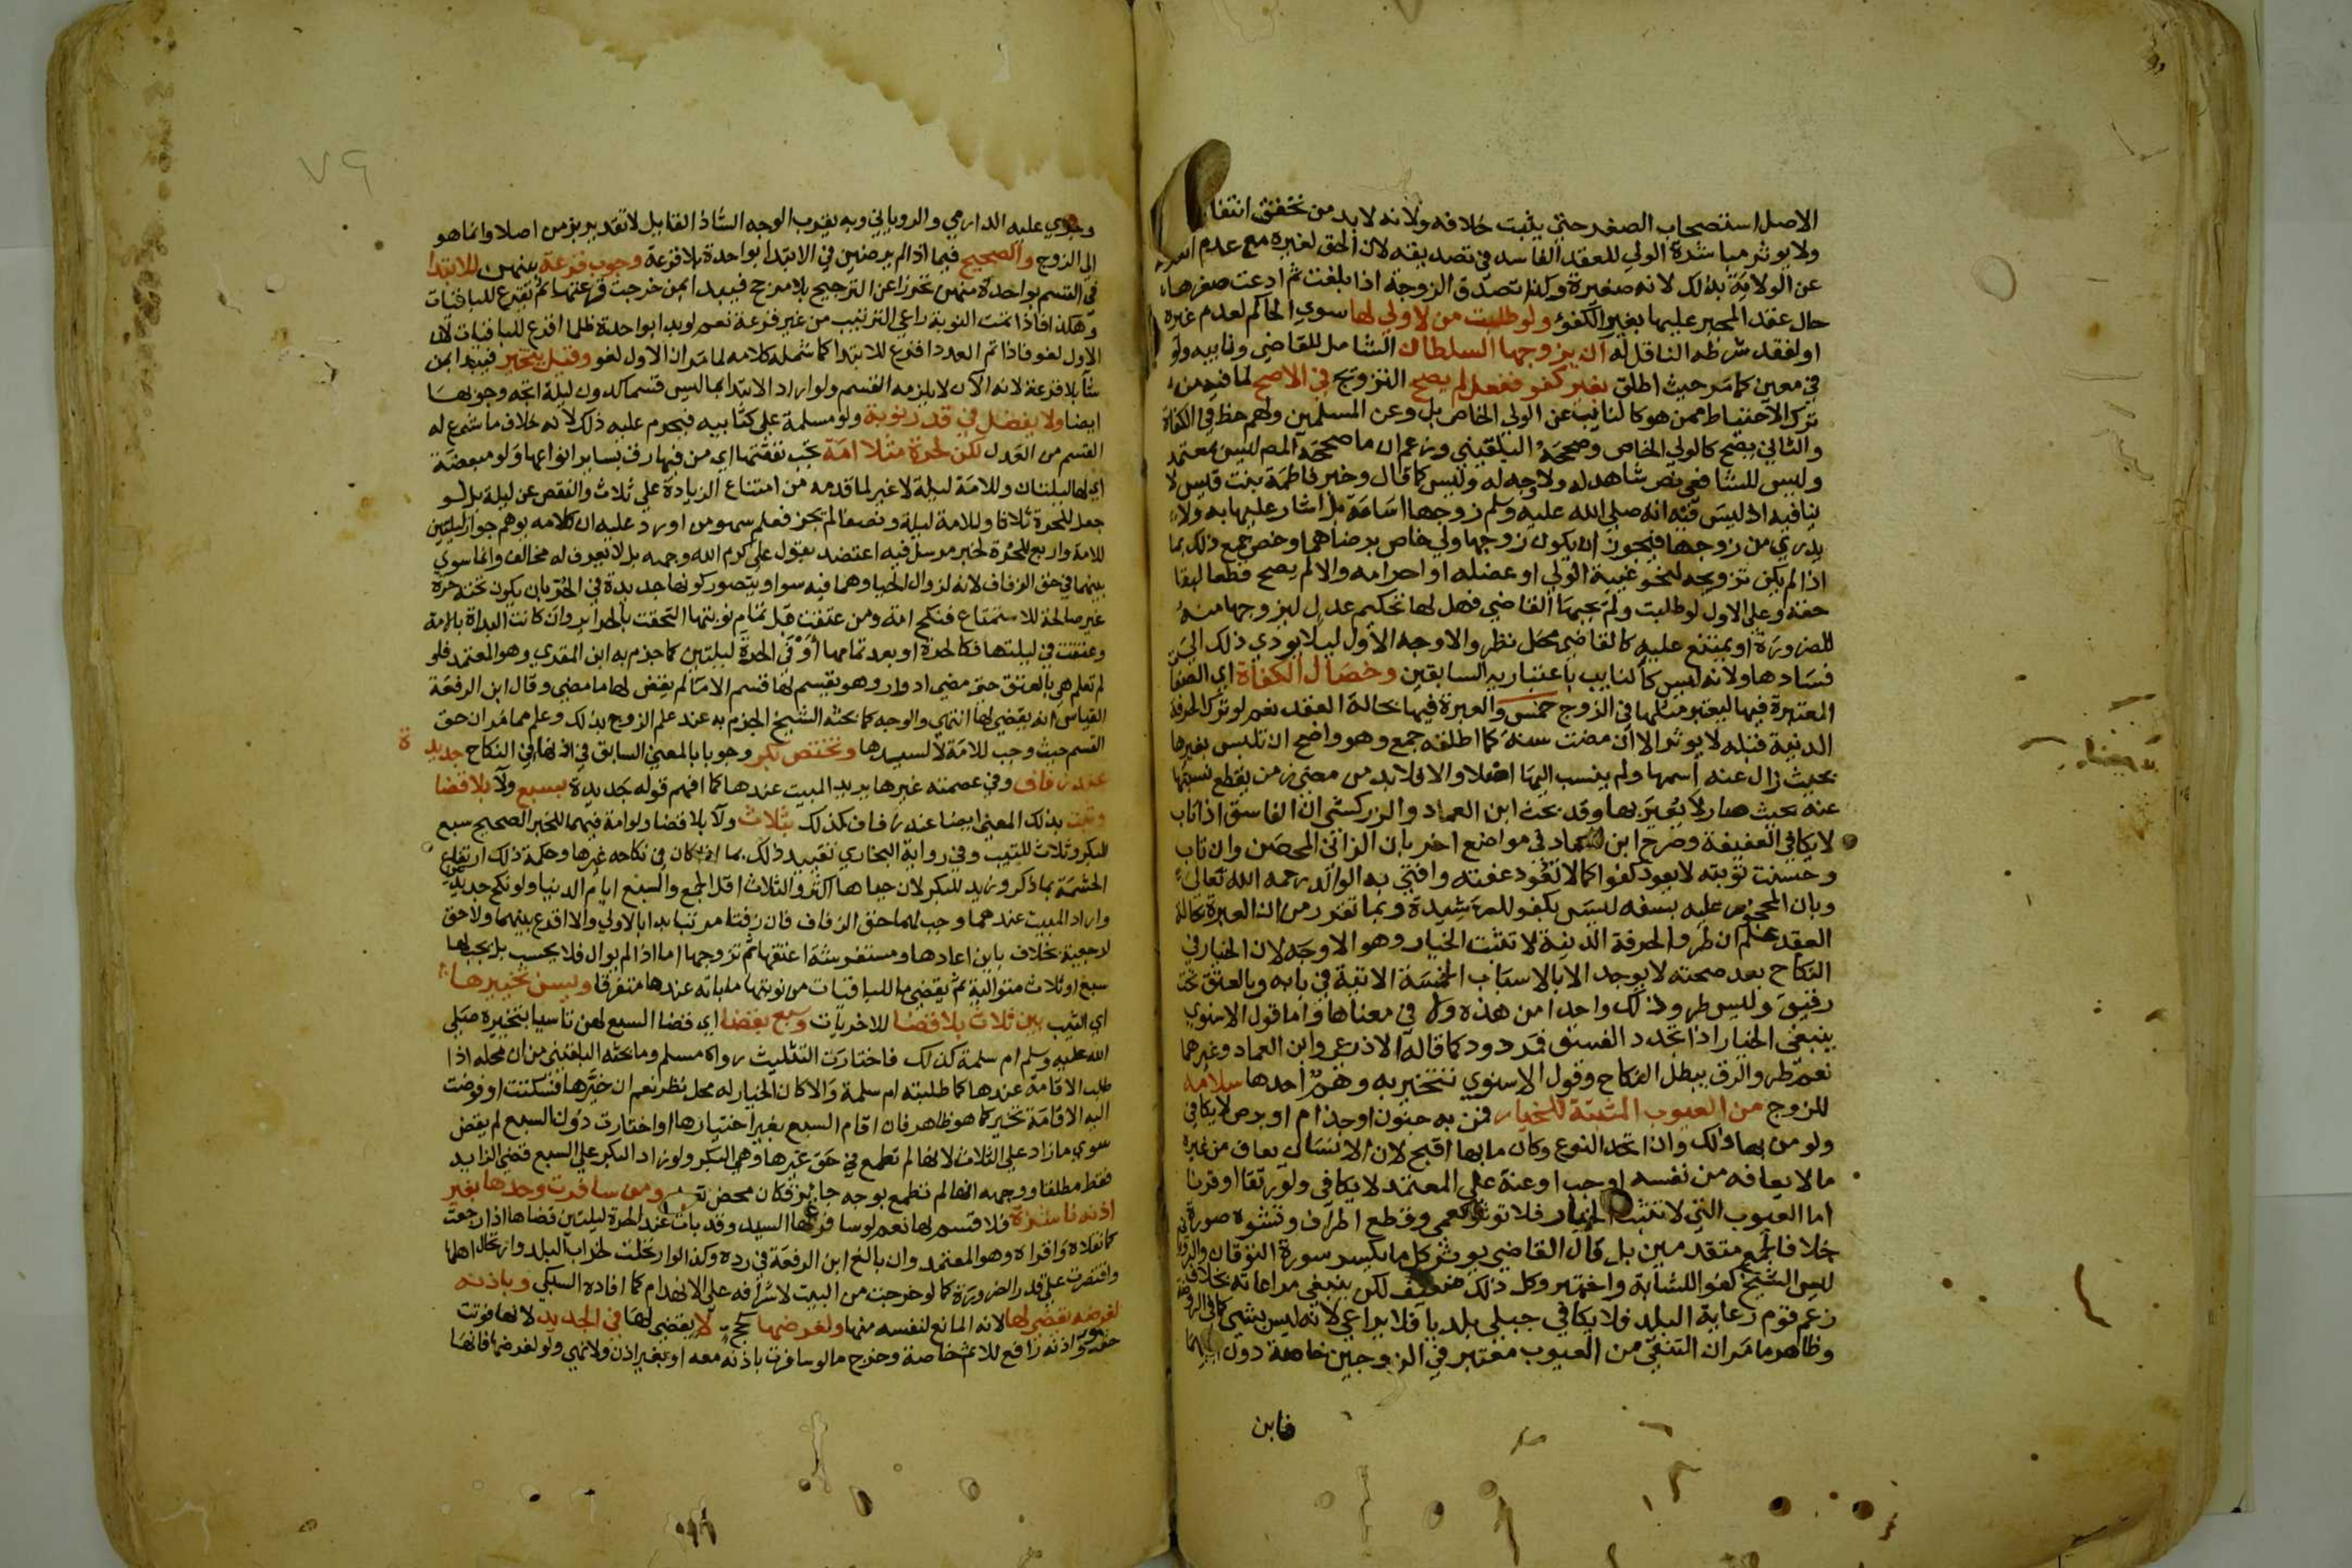 الاصل استصحاب الصغر حتى يثبت خلافه ولانه لابد من تحقق انتفا
ولا يوثر مباشرة الولي للعقد الفاسد في تصديقه لان الحق لغيره مع عدم
عن الولاية بذلك لانه صغيرة وكذا تصدق الزوجة اذا بلغت ثم ادعت صغرها
حال عقد المجبر عليها بغير الكفؤ ولو طلبت من لا ولي لها سوي الحاكم لعدم غيره
او لفقد شرطه الناقل له ان يزوجها السلطان الشامل للقاضي ونايبه ولو
في معين كما مر حيث اطلق بغير كفو ففعل لم يصح التزويج في الاصح لما فيه من
ترك الاحتياط ممن هو كالنايب عن الولي الخاص بل وعن المسلمين ولهم حظ في الكفاة
والثاني يصح كالولي الخاص وصححه البلقيني وزعم ان ما صححه المص ليس بمعتمد
وليس للشافعي نص شاهد له ولا وجه له وليس كما قال وخبر فاطمة بنت قيس لا
ينافيه اذ ليس فيه انه صلى الله عليه وسلم زوجها اسامة بل اشار عليها به ولا
يدري من زوجها فيجوز ان يكون زوجها ولي خاص برضاها وخص جمع ذلك بما
اذا لم يكن تزويجه لنحو غيبة الولي او عضله او احرامه والا لم يصح قطعا لبقا
حقه وعلى الاول لو طلبت ولم يجبها القاضي فهل لها تحكيم عدل ليزوجها منه
للضرورة او يمتنع عليه كالقاضي محل نظر والاوجه الاول ليلا يودي ذلك الي
فسادها ولانه ليس كالنايب باعتباريه السابقين وخصال الكفاة اي الصفا
المعتبرة فيها ليعتبر مثلها في الزوج خمس والعبرة فيها بحالة العقد نعم لو ترك الحرفة
الدنية قبله لا يوثر الا ان مضت سنة كما اطلقه جمع وهو واضح ان تلبس بغيرها
بحيث زال عنه اسمها ولم ينسب اليها اصلا والا فلا بد من مضي زمن يقطع نسبتها
عنه بحيث صار لا يعير بها وقد بحث ابن العماد والزركشي ان الفاسق اذا تاب
لا يكافي العفيفة وصرح ابن العماد في مواضع اخر بان الزاني المحصن وان تاب
وحسنت توبته لا يعود كفوا كما لا تعود عفته وافتى به الوالد رحمه الله تعالى
وبان المحجور عليه بسفه ليس بكفو للرشيدة وبما تقرر من ان العبرة بحالة
العقد علم ان طرو الحرفة الدنية لا تثبت الخيار وهو الاوجه لان الخيار في
النكاح بعد صحته لا يوجد الا بالاسباب الخمسة الاتية في بابه وبالعتق تحت
رقيق وليس طرو ذلك واحدا من هذه ولا في معناها واما قول الاسنوي
ينبغي الخيار اذا تجدد الفسق فمردود كما قاله الاذرعي وابن العماد وغيرهما
نعم طرو الرق يبطل النكاح وقول الاسنوي تتخير به وهم احدها سلامة
للزوج من العيوب المثبتة للخيار فمن به جنون او جذام او برص لا يكافي
ولو من بها ذلك وان اتحد النوع وكان ما بها اقبح لان الانسان يعاف من غيره
ما لا يعافه من نفسه او جب او عنة على المعتمد لا يكافي ولو رتقا او قرنا
اما العيوب التي لا تثبت الخيار فلا توثر كعمى وقطع اطراف وتشوه صورة
خلافا لجمع متقدمين بل قال القاضي يوثر كل ما يكسر سورة التوقان
ليس الشيخ كفو اللشابة واختير وكل ذلك ضعيف لكن ينبغي مراعاته بخلاف
زعم قوم رعاية البلد فلا يكافي جبلي بلديا فلا يراعي لانه ليس بشي كما في الروضة
وظاهر ما مر ان التنقي من العيوب معتبر في الزوجين خاصة دون
فابن
بعضها
٧٩
وجري عليه الدارمي والروياني وبه يقرب الوجه الشاذ القايل لا تقدير بزمن اصلا وانما هو
الى الزوج والصحيح فيما اذا لم يرضين في الابتدا بواحدة بلا قرعة وجوب قرعة بينهن للابتدا
في القسم بواحدة منهن تحرزا عن الترجيح بلا مرجح فيبدا بمن خرجت قرعتها ثم يقرع للباقيات
وهكذا فاذا تمت النوبة راعي الترتيب من غير قرعة نعم لو بدا بواحدة ظلما اقرع للباقيات لان
الاول لغو فاذا تم العدد اقرع للابتدا كما شمله كلامه لما مر ان الاول لغو وقيل يتخير فيبدا بمن
شا بلا قرعة لانه الآن لا يلزمه القسم ولو اراد الابتدا بما ليس قسما كدون ليلة اتجه وجوبها
ايضا ولا يفضل في قدر نوبة ولو مسلمة على كتابيه فيحرم عليه ذلك لانه خلاف ما شرع له
القسم من العدل لكن لحرة مثلا امة تجب نفقتها اي من فيها رق بساير انواعها ولو مبعضة
اي لها ليلتان وللامة ليلة لا غير لما قدمه من امتناع الزيادة على ثلاث والنقص عن ليلة بل لو
جعل للحرة ثلاثا وللامة ليلة ونصفا لم يجز فعلم سهو من اورد عليه ان كلامه يوهم جواز ليلتين
للامة واربع للحرة لخبر مرسل فيه اعتضد بقول علي كرم الله وجهه بل لا يعرف له مخالف وانما سوي
بينهما في حق الزفاف لانه لزوال الحيا وهما فيه سوا ويتصور كونها جديدة في الحر بان يكون تحته حرة
غير صالحة للاستمتاع فنكح امة ومن عتقت قبل تمام نوبتها التحقت بالحراير وان كانت البداة بالامة
وعتقت في ليلتها فكالحرة او بعد تمامها اوفي الحرة ليلتين كما جزم به ابن المقري وهو المعتمد فلو
لم تعلم هي بالعتق حتى مضي ادوار وهو يقسم لها قسم الاما لم يقض لها ما مضي وقال ابن الرفعة
القياس انه يقضي لها انتهي والوجه كما بحثه الشيخ الجزم به عند علم الزوج بذلك وعلم مما مر ان حق
القسم حيث وجب للامة لا لسيدها وتختص بكر وجوبا بالمعني السابق في اذنها في النكاح جديدة
عند زفاف وفي عصمته غيرها يريد المبيت عندها كما افهم قوله جديدة بسبع ولآ بلا قضا
وثيب بذلك المعني ايضا عند زفاف كذلك بثلاث ولآ بلا قضا ولو امة فيهما للخبر الصحيح سبع
للبكر وثلاث للثيب وفي رواية البخاري تقييد ذلك بما اذا كان في نكاحه غيرها وحكمة ذلك ارتفاع
الحشمة بما ذكر وزيد للبكر لان حياها اكثر والثلاث اقل الجمع والسبع ايام الدنيا ولو نكح جديدتين
واراد المبيت عندهما وجب لهما حق الزفاف فان زفتا مرتبا بدا بالاولي والا اقرع بينهما ولا حق
لرجعية بخلاف باين اعادها ومستفرشة اعتقها ثم تزوجها اما اذا لم يوال فلا يحسب بل يجب لها
سبع او ثلاث متوالية ثم يقضي ما للباقيات من نوبتها ما باته عندها متفرقا ويسن تخييرها
اي الثيب بين ثلاث بلا قضا للاخريات وسبع بقضا اي قضا السبع لهن تاسيا بتخييره صلى
الله عليه وسلم ام سلمة كذلك فاختارت التثليث رواه مسلم وما بحثه البلقيني من ان محله اذا
طلب الاقامة عندها كما طلبته ام سلمة والا كان الخيار له محل نظر نعم ان خيرها فسكتت او فوضت
اليه الاقامة تخير كما هو ظاهر فان اقام السبع بغير اختيارها او اختارت دون السبع لم يقض
سوي ما زاد على الثلاث لانها لم تطمع في حق غيرها وهي البكر ولو زاد البكر على السبع قضي الزايد
فقط مطلقا ووجهه انها لم تطمع بوجه جايز فكان محض ومن سافرت وحدها بغير
اذنه ناشزة فلا قسم لها نعم لو سافر بها السيد وقد بات عند الحرة ليلتين قضاها اذا رجعت
كما نقلاه واقراه وهو المعتمد وان بالغ ابن الرفعة في رده وكذا لو ارتحلت لخراب البلد وارتحال اهلها
واقتصرت على قدر الضرورة كما لو خرجت من البيت لاشرافه على الانهدام كما افاده السبكي وباذنه
لغرضه يقضي لها لانه المانع لنفسه منها ولغرضها كحج لا يقضي لها في الجديد لانها فوتت
حقه واذنه رافع للاثم خاصة وخرج ما لو سافرت باذنه معه او بغير اذن ولا نهي ولو لغرضها فانها